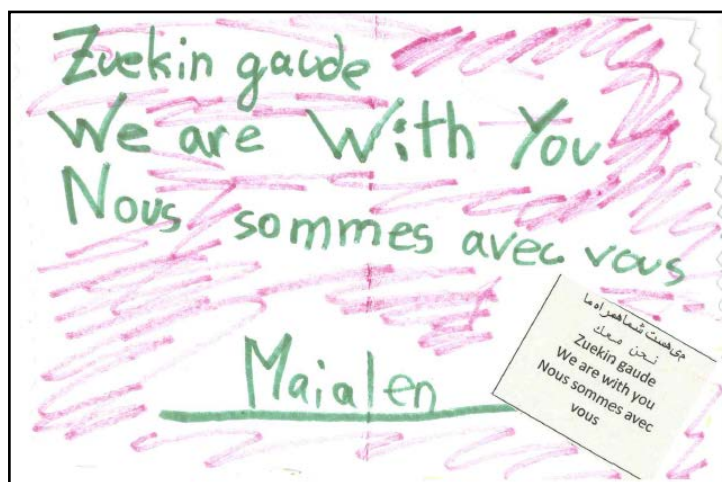 Zuekin gaude
We are With You
Nous sommes avec vous
Maialen
می‌هست شماهمراه ما
نحن معك
Zuekin gaude
We are with you
Nous sommes avec
vous